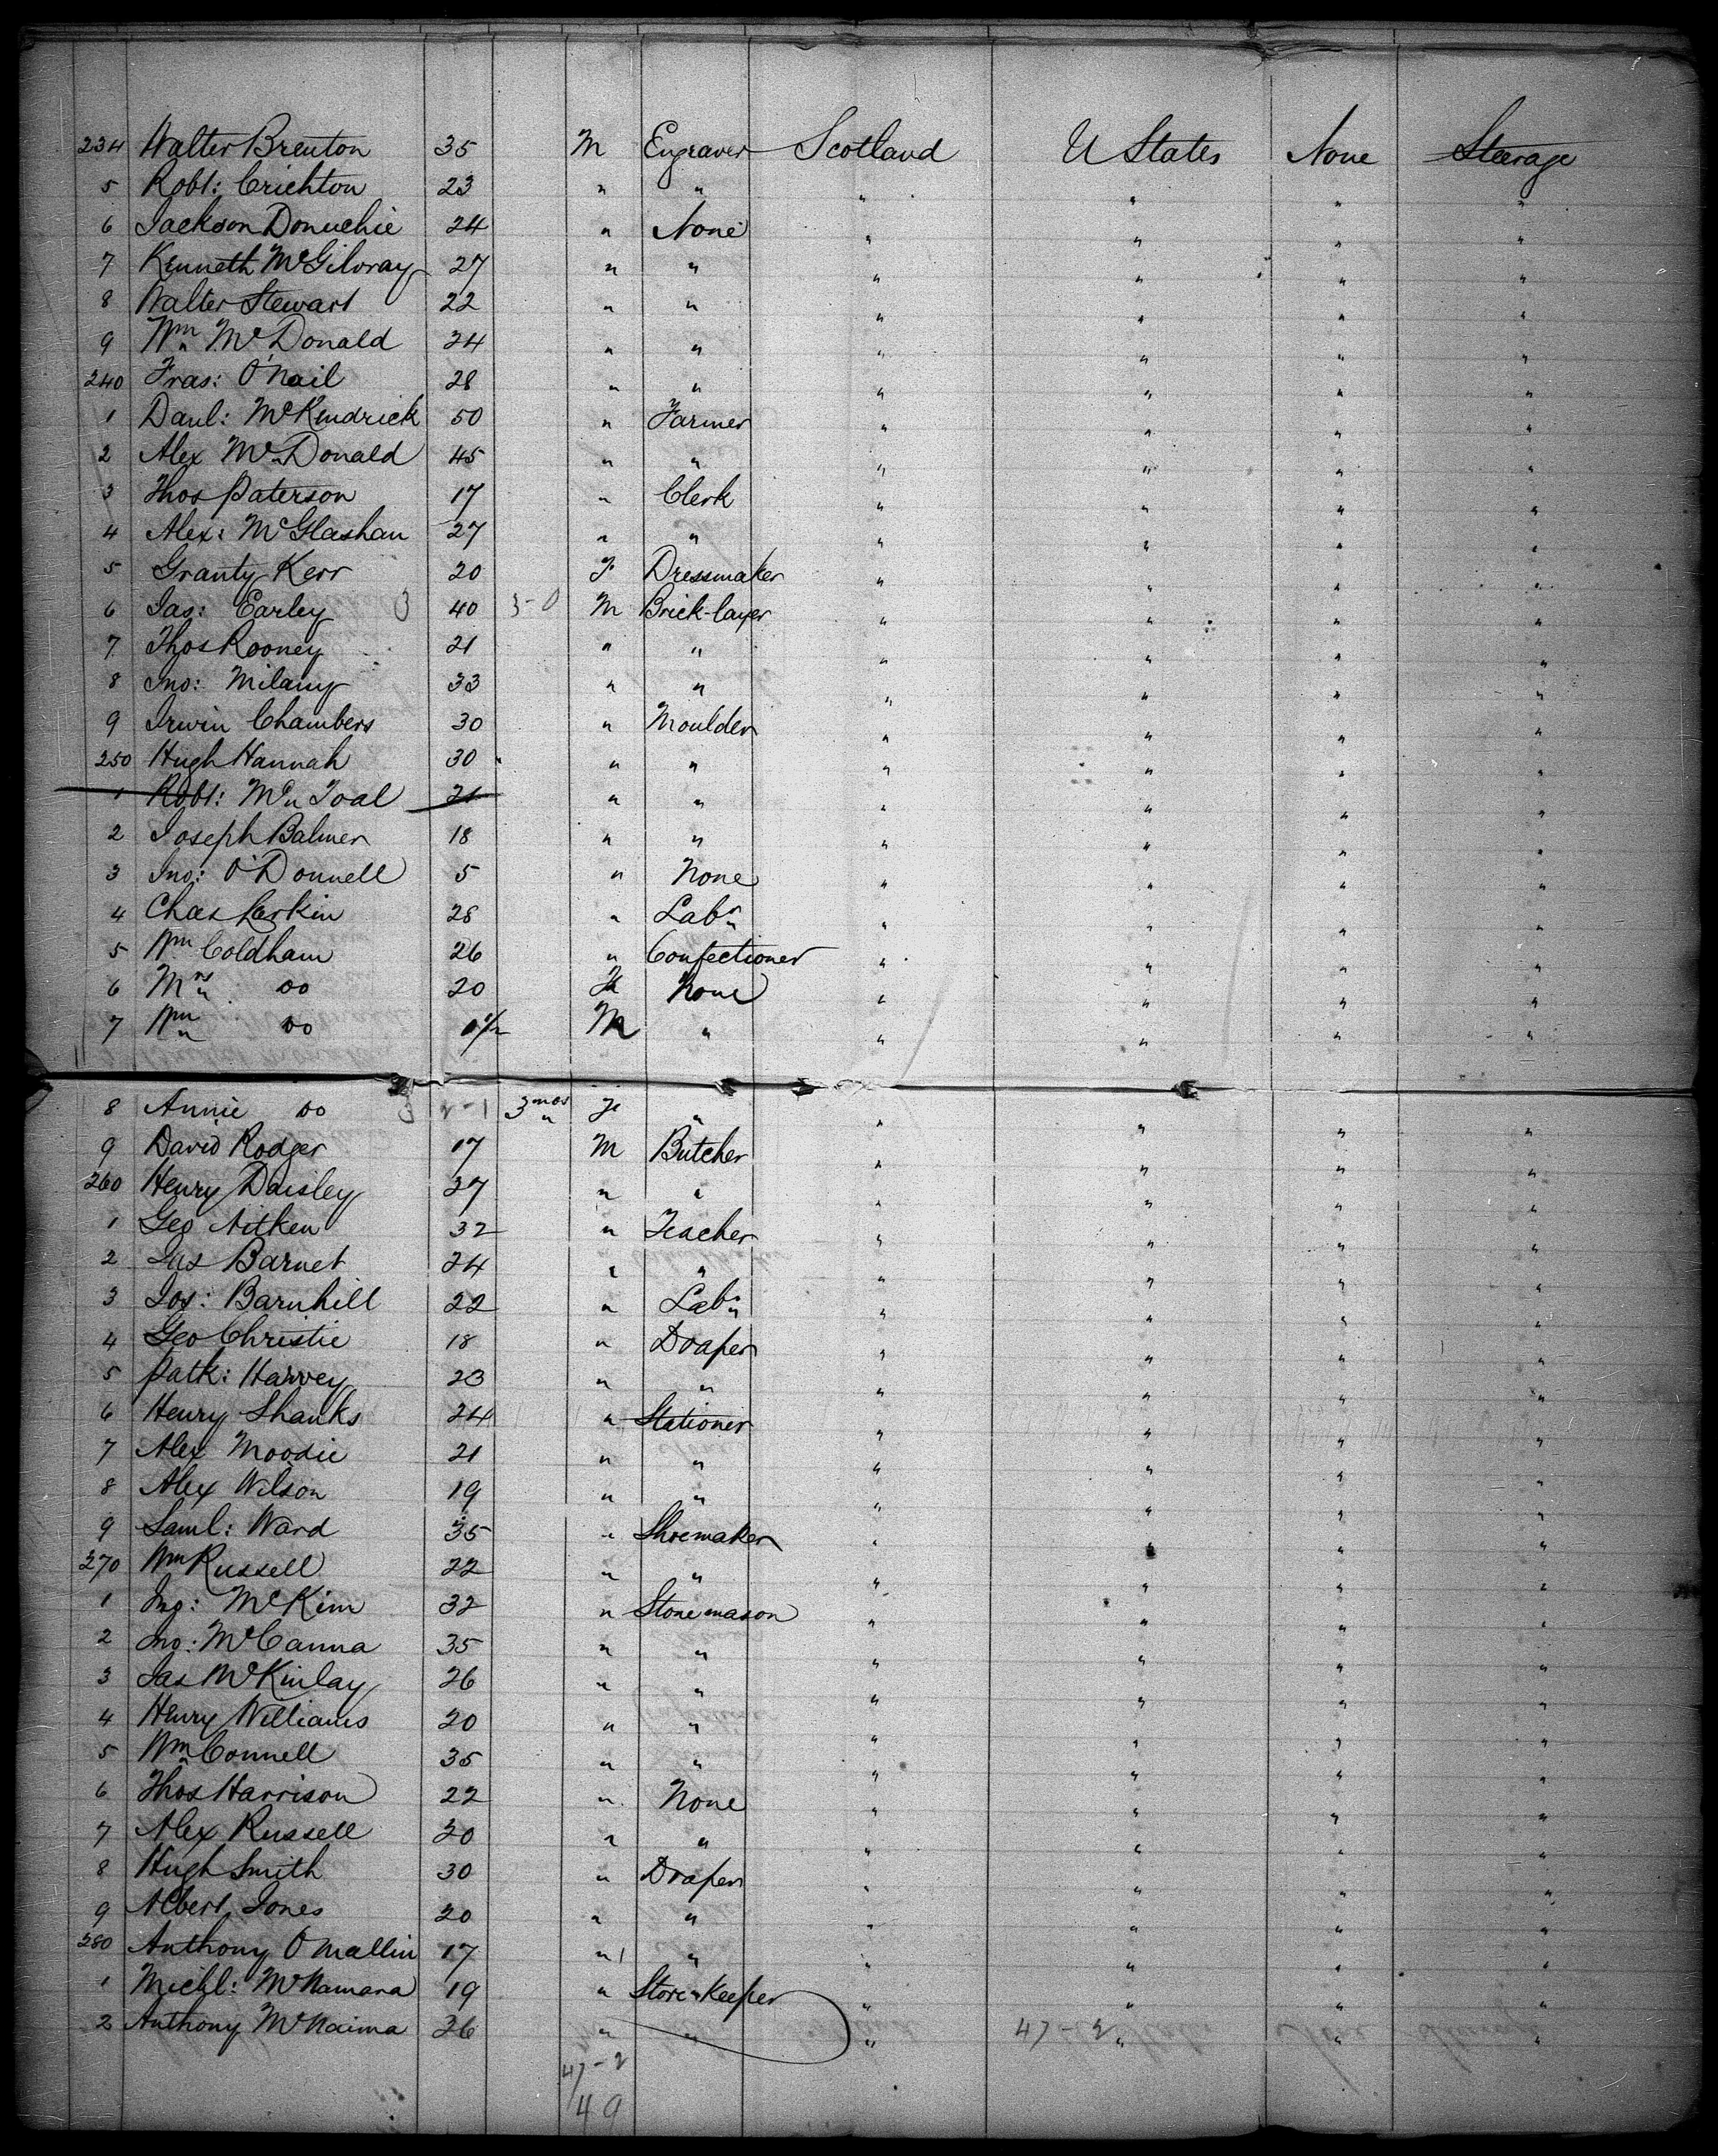 234 Walter Brenton 35 M Engraver Scotland U States None Steerage
5 Robt: Crichton 23 " " " " " "
6 Jackson Donuchie 24 " None " " " "
7 Kenneth McGilvray 27 " " " " " "
8 Walter Stewart 22 " " " " " "
9 Wm McDonald 24 " " " " " "
240 Fras: O'Nail 28 " " " " " "
1 Danl: McKendrick 50 " Farmer " " " "
2 Alex McDonald 45 " " " " " "
3 Thos Paterson 17 " Clerk " " " "
4 Alex: McGlashan 27 " " " " " "
5 Granty Kerr 20 F Dressmaker " " " "
6 Jas: Earley 3 40 3-0 M Brick-layer " " " "
7 Thos Rooney 21 " " " " " "
8 Jno: Milamy 33 " " " " " "
9 Irwin Chambers 30 " Moulder " " " "
250 Hugh Hannah 30 " " " " " "
1 Robt: Mc Toal 21 " " " " " "
2 Joseph Balmer 18 " " " " " "
3 Jno: O'Donnell 5 " None " " " "
4 Chas Larkin 28 " Labr " " " "
5 Wm Coldham 26 " Confectioner " " " "
6 Mrs Do 20 F None " " " "
7 Wm Do 1/2 M " " " " "
8 Annie Do 3mos F " " " " "
9 David Rodger 17 M Butcher " " " "
260 Henry Daisley 27 " " " " " "
1 Geo Aitken 32 " Teacher " " " "
2 Jas Barnet 24 " " " " " "
3 Jos: Barnhill 22 " Labr " " " "
4 Geo Christie 18 " Draper " " " "
5 Patk: Harvey 23 " " " " " "
6 Henry Shanks 24 " Stationer " " " "
7 Alex Moodie 21 " " " " " "
8 Alex Wilson 19 " " " " " "
9 Saml: Ward 35 " Shoemaker " " " "
270 Wm Russell 22 " " " " " "
1 Jno: McKim 32 " Stonemason " " " "
2 Jno: McCanna 35 " " " " " "
3 Jas McKinlay 26 " " " " " "
4 Henry Williams 20 " " " " " "
5 Wm Connell 35 " " " " " "
6 Thos Harrison 22 " None " " " "
7 Alex Russell 20 " " " " " "
8 Hugh Smith 30 " Draper " " " "
9 Albert Jones 20 " " " " " "
280 Anthony O'Mallin 17 " " " " " "
1 Michl: McNamara 19 " Store-Keeper " " " "
2 Anthony McNaima 26 " " " 47-2 " " "
47-2
49